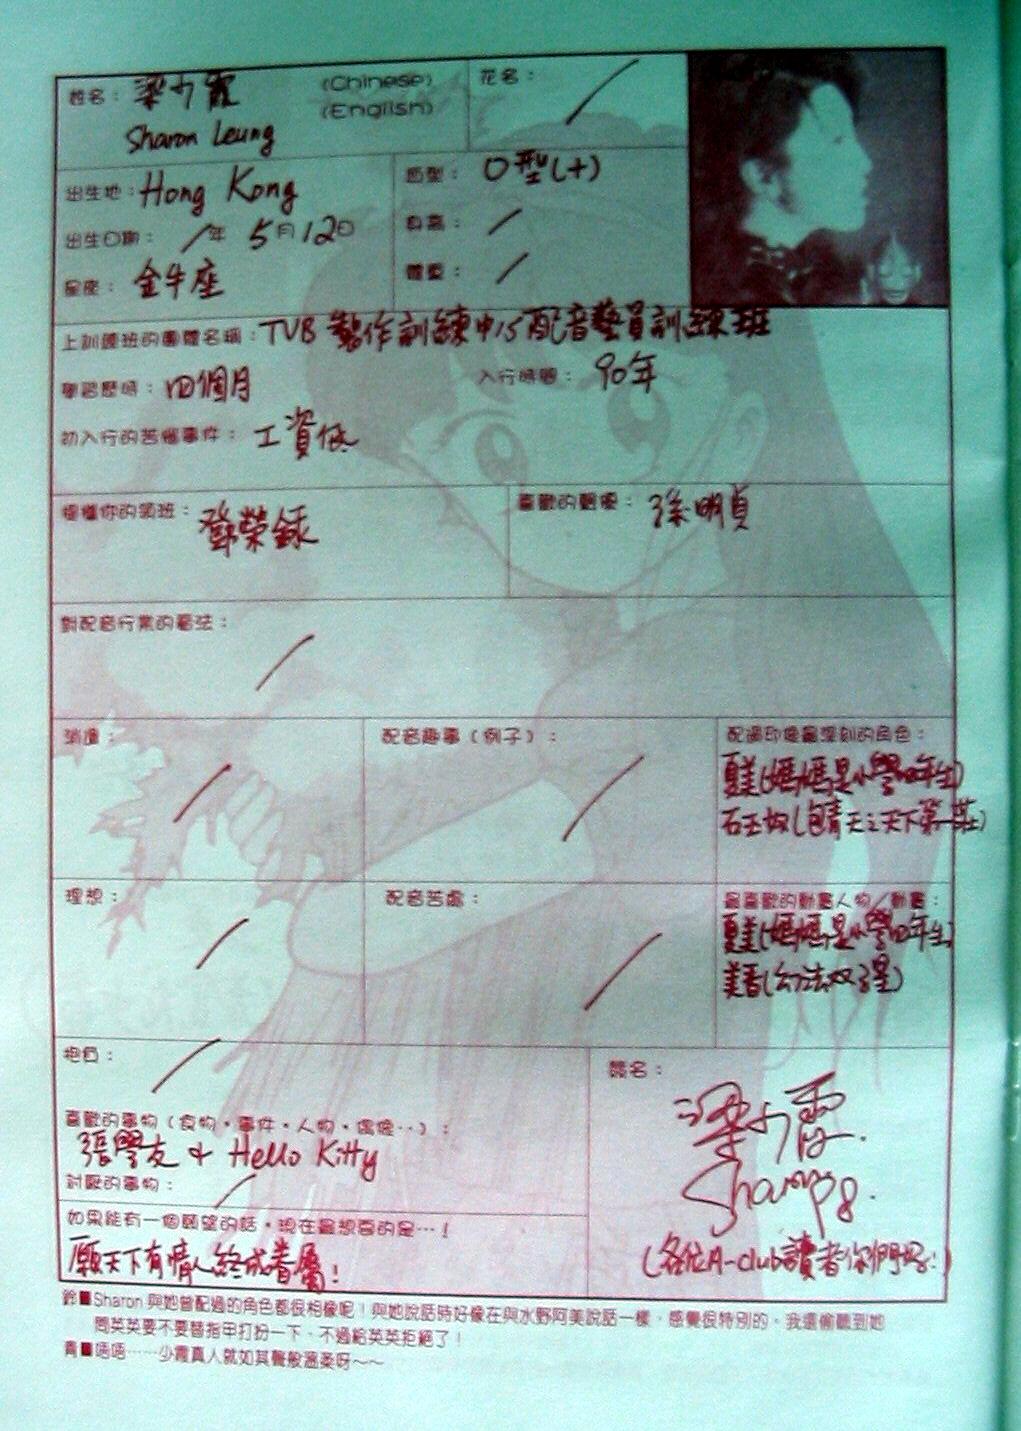 姓名：梁少霞 (Chinese)
Sharon Leung (English)
花名：/
出生地：Hong Kong
血型：O型(+)
出生日期：/年 5月12日
身高：/
星座：金牛座
體重：/
上訓練班的團體名稱：TVB 製作訓練中心配音藝員訓練班
學習歷時：四個月
入行時間：90年
初入行的苦惱事件：工資低
提攜你的領班：鄧榮銾
喜歡的聲優：孫明貞
對配音行業的看法：/
消遣：/
配音趣事（例子）：/
配過印像最深刻的角色：
夏美(媽媽是小學四年生)
石玉奴(包青天之天下第一莊)
理想：/
配音苦處：/
最喜歡的動畫人物／動畫：
夏美(媽媽是小學四年生)
美香(幻法双子星)
抱負：/
喜歡的事物（食物・事件・人物・偶像‥）：
張學友 & Hello Kitty
討厭的事物：/
如果能有一個願望的話，現在最想喜的是…！
願天下有情人終成眷屬！
簽名：
梁少霞.
Sharon 98.
(各位A-club讀者你們好!)
鈴■Sharon 與她曾配過的角色都很相像呢！與她說話時好像在與水野阿美說話一樣，感覺很特別的。我還偷聽到她
問英英要不要替指甲打扮一下，不過給英英拒絕了！
青■唔唔……少霞真人就如其聲般溫柔呀～～